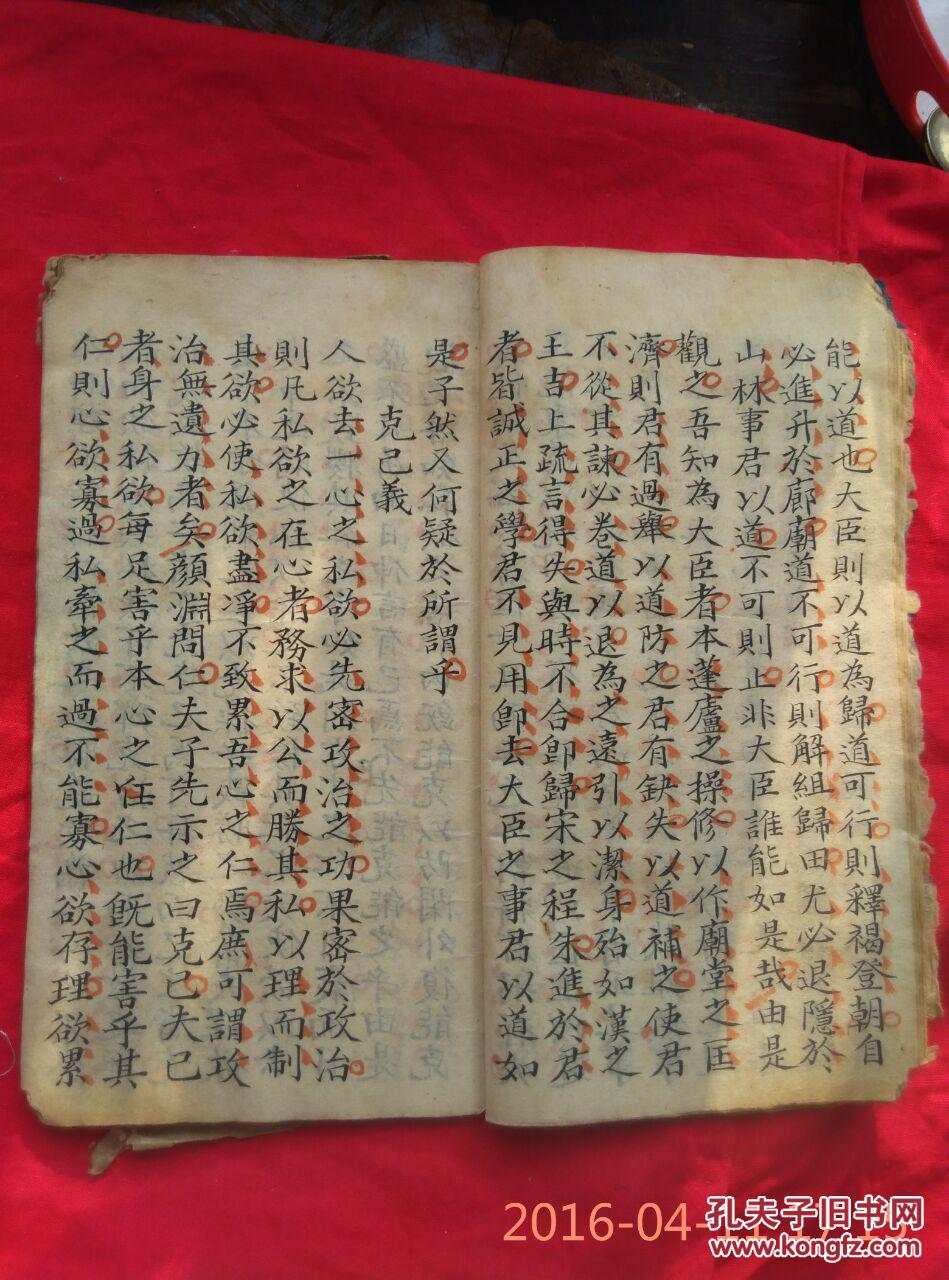 能以道也大臣則以道為歸道可行則釋褐登朝自
必進升於廊廟道不可行則解組歸田尤必退隱於
山林事君以道不可則止非大臣誰能如是哉由是
觀之吾知為大臣者本蓬廬之操修以作廟堂之匡
濟則君有過舉以道防之君有缺失以道補之使君
不從其諫必卷道以退為之遠引以潔身殆如漢之
王吉上疏言得失與時不合卽歸宋之程朱進於君
者皆誠正之學君不見用卽去大臣之事君以道如
是子然又何疑於所謂乎
克己義
人欲去一心之私欲必先密攻治之功果密於攻治
則凡私欲之在心者務求以公而勝其私以理而制
其欲必使私欲盡凈不致累吾心之仁焉庶可謂攻
治無遺力者矣顏淵問仁夫子先示之曰克己夫己
者身之私欲每足害乎本心之任仁也旣能害乎其
仁則心欲寡過私牽之而過不能寡心欲存理欲累
2016-04-11 17:15
孔夫子旧书网
www.kongfz.com